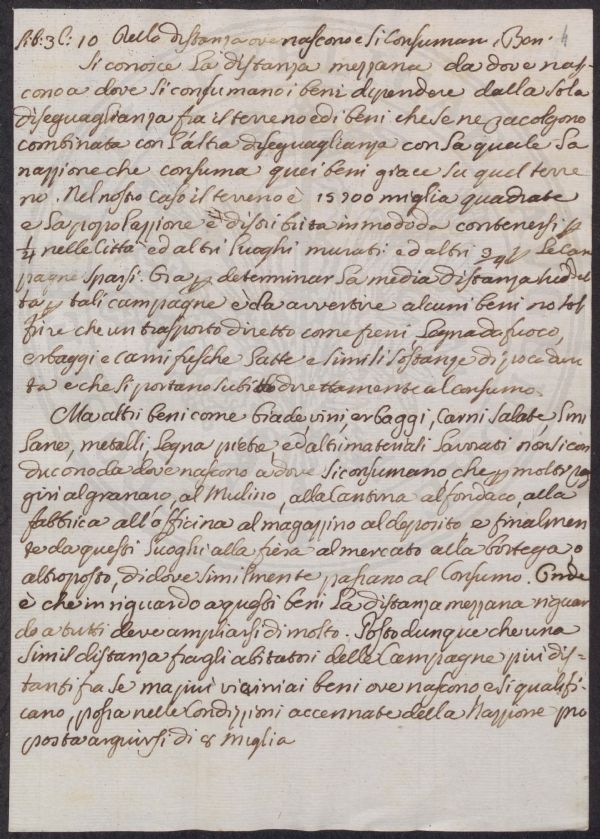 Lib: 3 C: 10 Della distanza ove nascono e si Consuman i Beni
Si conosce La distanza mezzana da dove nas-
cono a dove Si consumano i beni dipendere dalla sola
diseguaglianza fra il terreno ed i beni che se ne racolgono
combinata con L'altra diseguaglianza con La quale La
nazzione che consuma quei beni giace su quel terre
no. Nel nostro caso il terreno è 15900 miglia quadrate
e La popolazzione è distribuita in modo da contenersi p
1/4 nelle Città ed altri Luoghi murati ed altri 3/4 p Le Cam
pagne sparsi. Ora p determinar La media distanza sud
ta p tali campagne è da avvertire alcuni beni no sof
frire che un trasporto diretto come fieni, Legna da fuoco,
erbaggi e carni fresche Latte e simili sostanze di poca dura
ta e che Si portano subito direttamente al consumo.
Ma altri beni come biade, vini, erbaggi, Carni Salate,
Lane, metalli, Legna pietre, ed altri materiali Lavorati non si con
ducono da dove nascono a dove Si consumano che p molti
giri al granaro, al Mulino, alla Cantina al fondaco, alla
fabbrica all'officina al magazzino al deposito e finalmen
te da questi Luoghi alla fiera al mercato alla bottega o
altro posto, di dove similmente passano al Consumo. Onde
è che in riguardo a questi beni La distanza mezzana riguar
do a tutti deve ampliarsi di molto. Posto dunque che una
simil distanza fra gli abitatori delle Campagne più dis-
tanti fra Se ma più vicini ai beni ove nascono e si qualifi-
cano, possa nelle Condizzioni accennate della Nazzione pro
posta arguirsi di 8 Miglia